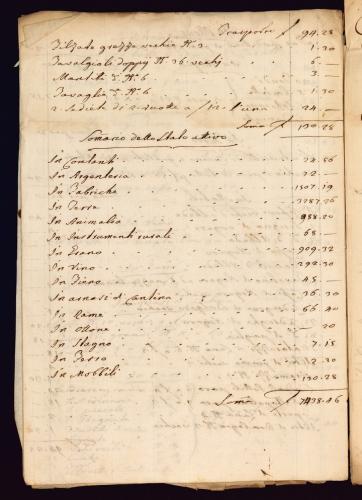 Trasporto f 94.28
grezze vecchie N. 3 1.30
Tavaglioli doppij N. 36 vechj 6. —
Mantili N. 6 3. —
Tavaglie N. 6 1.30
2 24. —
Soma f 130.28
Somario dello Stato attivo
In Contanti 74.56
In Argenteria 72. —
In Fabriche 1507.19
In Terre 3287.26
In Animalia 988.20
In Instrumenti rurali 68. —
In Grano 909.32
In Vino 292.30
In Fieno 45. —
In arnasi d Cantina 36.30
In Rame 66.40
In Ottone — 20
In Stagno 7.15
In Ferro 2.30
In Mobbili 130.28
Soma f 7438.46